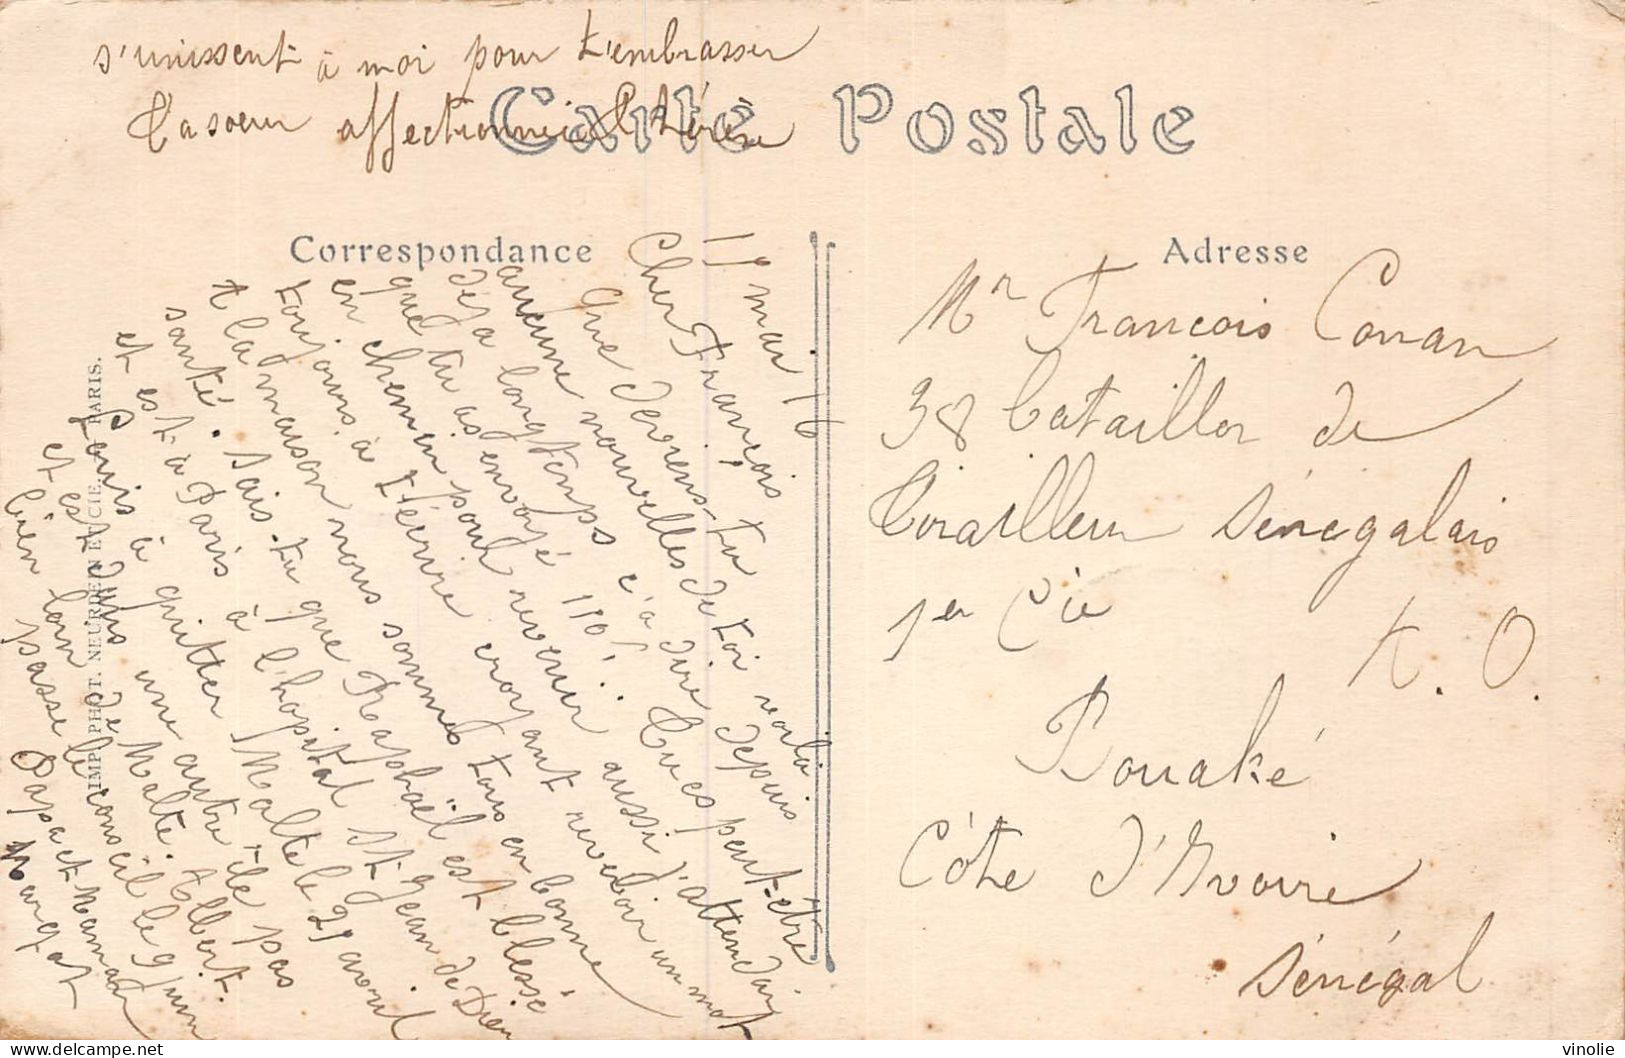 Carte Postale
Correspondance
Adresse
11 mai 16
Cher François
Que deviens-tu voilà
aucune nouvelles de toi depuis
déjà longtemps c'a dire
que tu as envoyé 110! Tu es peut-être
en chemin pour revenir aussi j'attendais
toujours à t'écrire croyant recevoir un mot
A la maison nous sommes tous en bonne
santé. Sais-tu que Raphaël est blessé
et est à Paris à l'hopital St Jean de Dieu
Louis à quitter Malte le 21 avril
et est dans une autre île pas
bien loin de Malte. Albert
passe le conseil le 9 juin
Papa et Maman
Margot
s'unissent à moi pour t'embrasser
Ta soeur affectionnée Thérèse
Mr Francois Conan
38 bataillon de
Tirailleur Sénégalais
1er Cie
A. O.
Bouaké
Côte d'Ivoire
Sénégal
IMP. PHOT. NEURDEIN ET CIE. PARIS.
vinolie